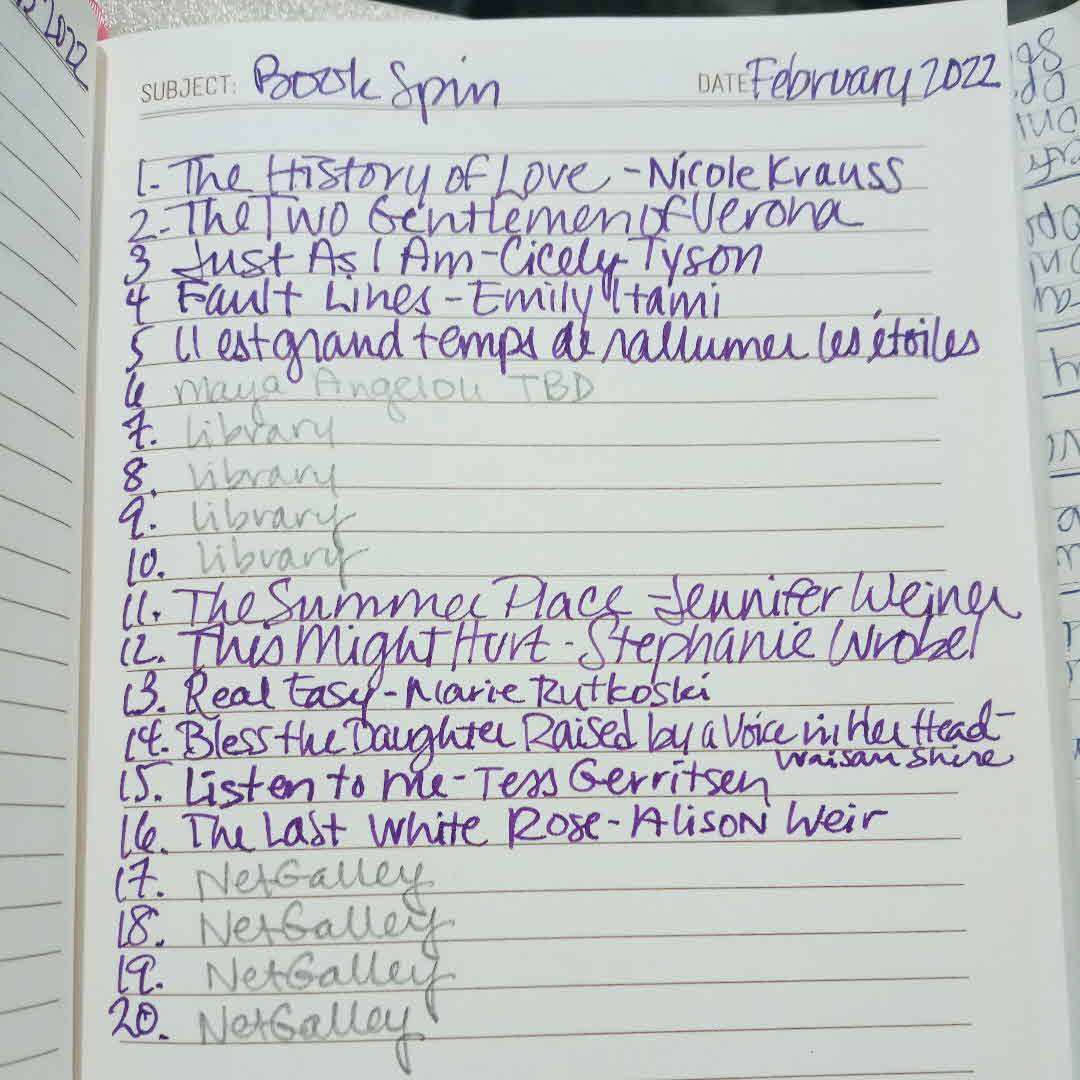 SUBJECT: Book Spin DATE February 2022
1. The History of Love - Nicole Krauss
2. The Two Gentlemen of Verona
3 Just As I Am - Cicely Tyson
4 Fault Lines - Emily Itami
5 Il est grand temps de rallumer les étoiles
6 Maya Angelou TBD
7. Library
8. Library
9. Library
10. Library
11. The Summer Place - Jennifer Weiner
12. This Might Hurt - Stephanie Wrobel
13. Real Easy - Marie Rutkoski
14. Bless the Daughter Raised by a Voice in Her Head -
Warsan Shire
15. Listen to Me - Tess Gerritsen
16. The Last White Rose - Alison Weir
17. NetGalley
18. NetGalley
19. NetGalley
20. NetGalley
2022